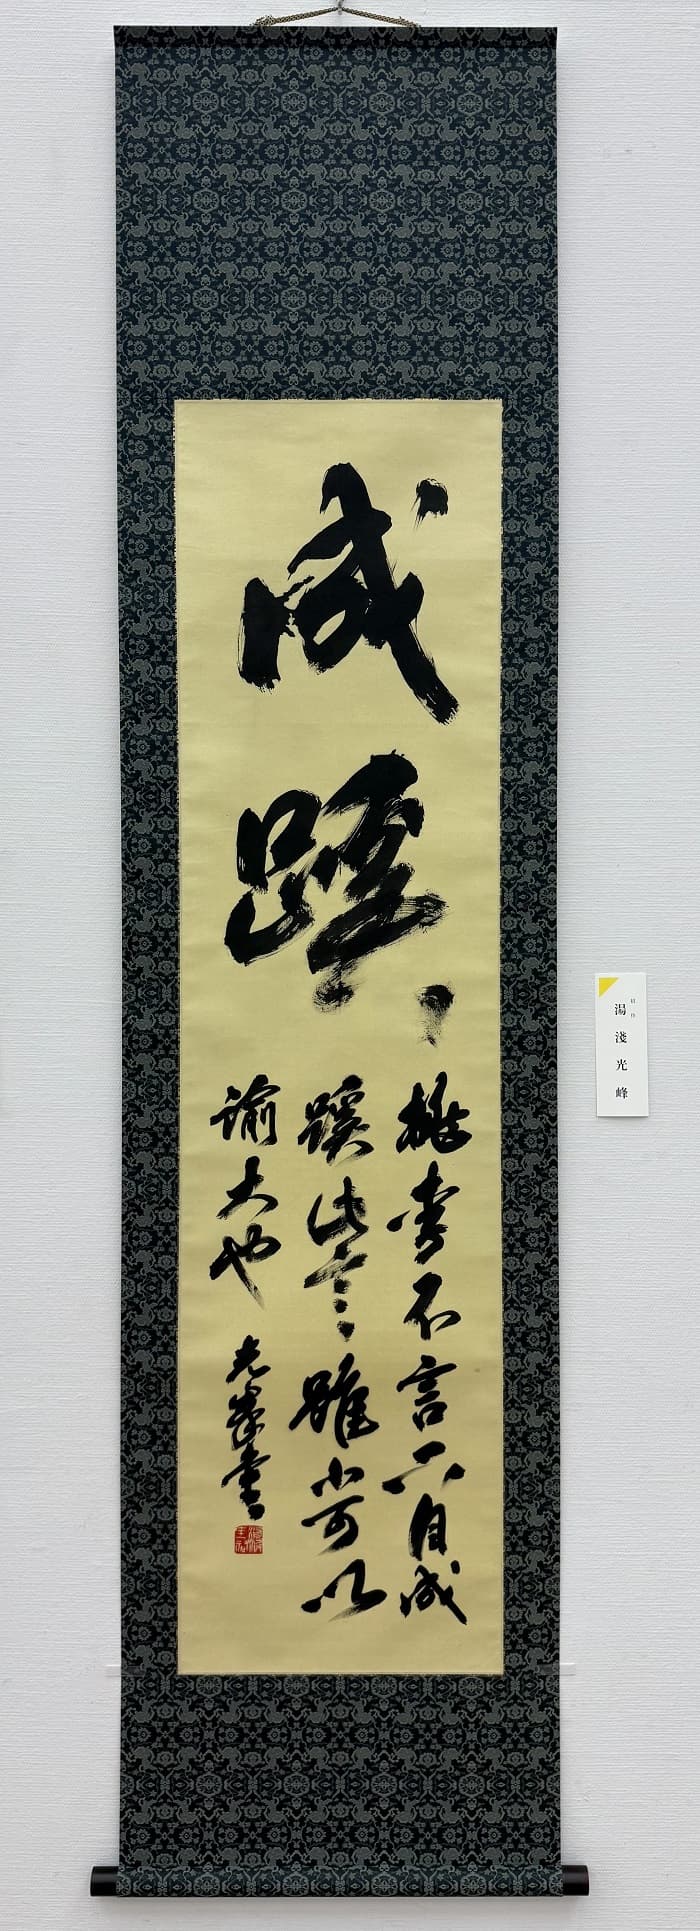 成蹊
桃李不言下自成
蹊此言雖小可以
諭大也
光峰書
湯淺光峰